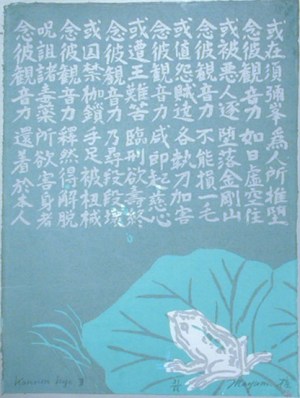 或在須彌峯 為人所推墮
念彼観音力 如日虚空住
或被悪人逐 堕落金剛山
念彼観音力 不能損一毛
或値怨賊遶 各執刀加害
念彼観音力 咸即起慈心
或遭王難苦 臨刑欲壽終
念彼観音力 刀尋段段壊
或囚禁枷鎖 手足被杻械
念彼観音力 釋然得解脱
呪詛諸毒薬 所欲害身者
念彼観音力 還着於本人
Mayumi